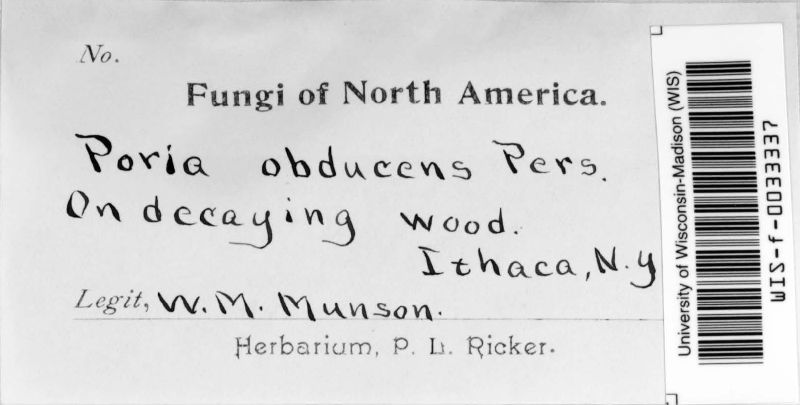 No.
Fungi of North America.
Poria obducens Pers.
On decaying wood.
Ithaca, N.Y
Legit, W. M. Munson.
Herbarium, P. L. Ricker.
University of Wisconsin-Madison (WIS)
WIS-f-0033337